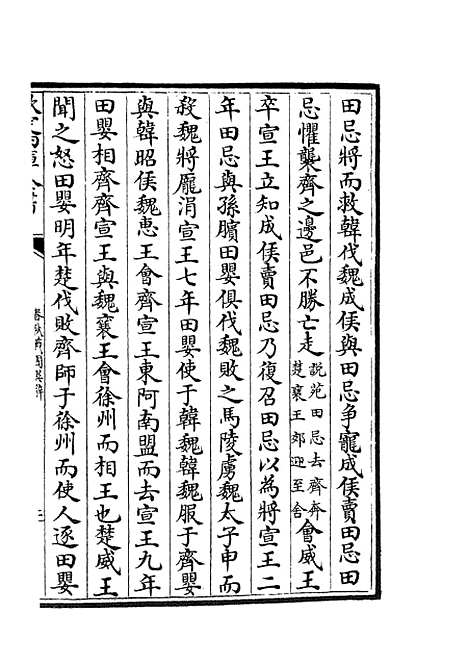 田忌將而救韓伐魏成侯與田忌爭寵成侯賣田忌田
忌懼襲齊之邊邑不勝亡走說苑田忌去齊奔楚襄王郊迎至舍會威王
卒宣王立知成侯賣田忌乃復召田忌以為將宣王二
年田忌與孫臏田嬰俱伐魏敗之馬陵虜魏太子申而
殺魏將龐涓宣王七年田嬰使于韓魏韓魏服于齊嬰
與韓昭侯魏惠王會齊宣王東阿南盟而去宣王九年
田嬰相齊齊宣王與魏襄王會徐州而相王也楚威王
聞之怒田嬰明年楚伐敗齊師于徐州而使人逐田嬰